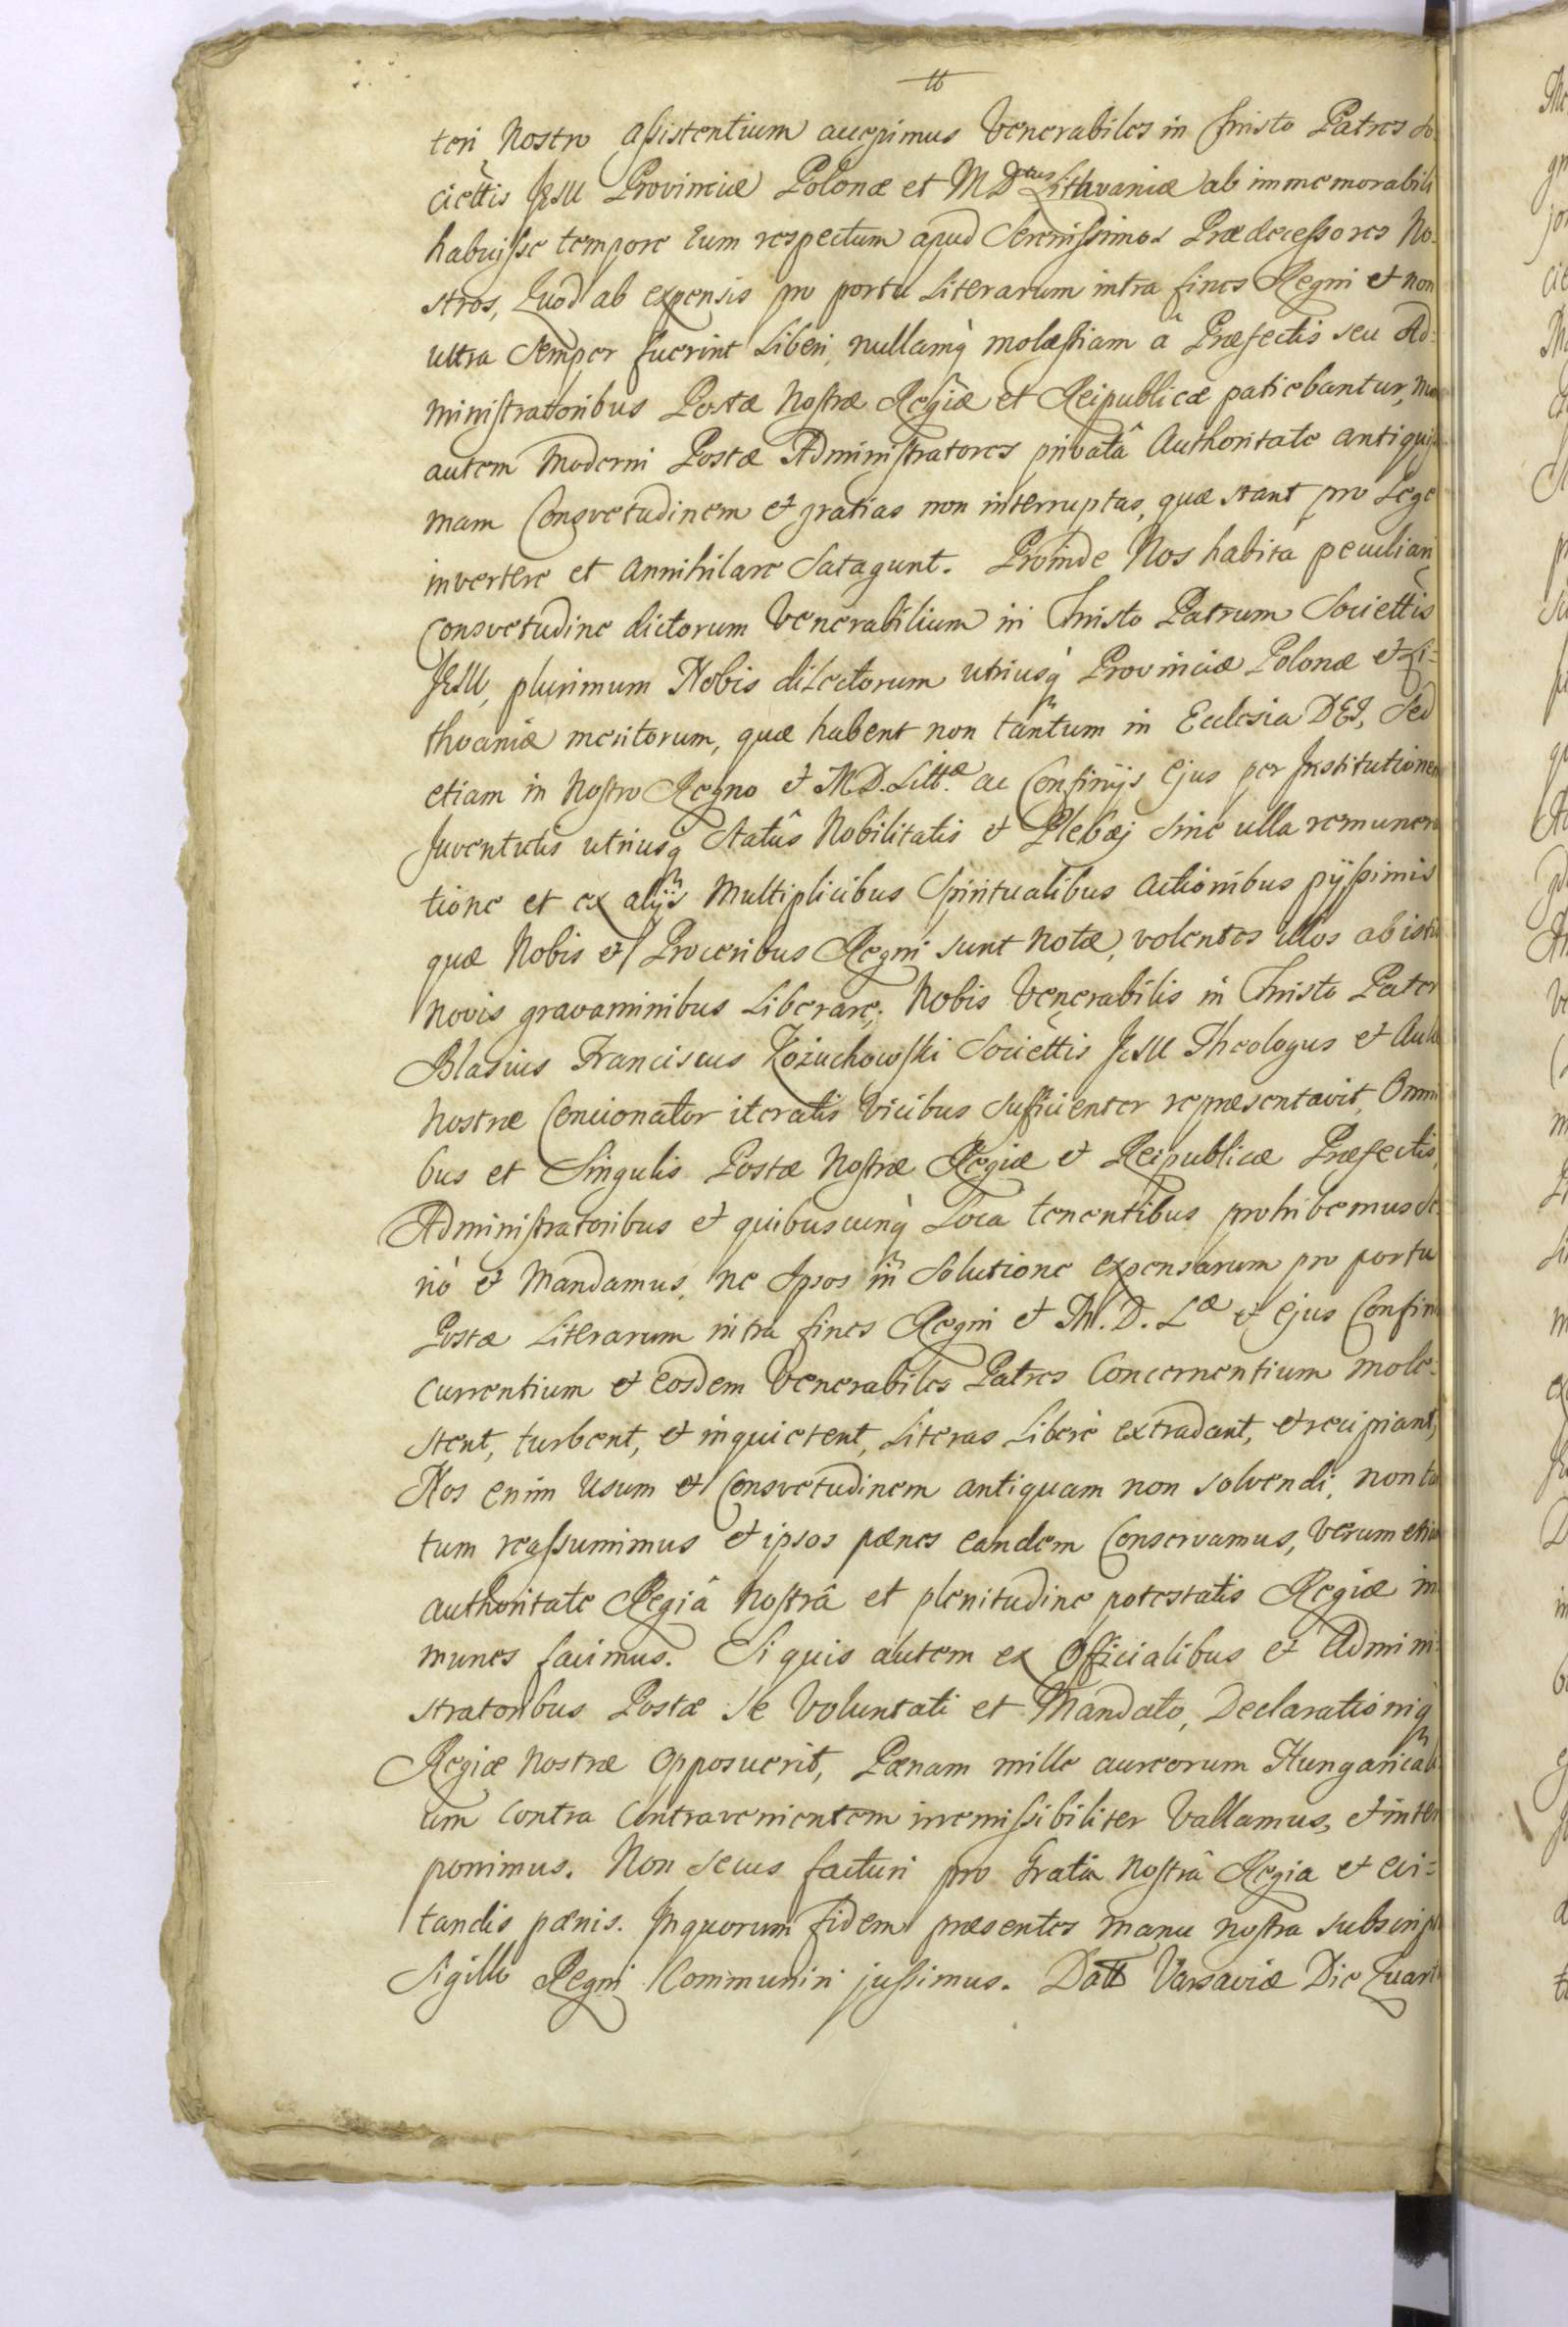 teri Nostro assistentium accepimus Venerabiles in Christo Patres So
ciettis JESU Provinciæ Polonæ et M Dctus Lithvaniæ ab immemorabili
habuisse tempore Eum respectum apud Serenissimos Prædecessores No-
stros, Quod ab expensis pro portu Literarum intra fines Regni et non
ultra Semper fuerint Liberi, nullamq̀ molæstiam â Præfectis seu Ad=
ministratoribus Postæ Nostræ Regiæ et Reipublicæ patiebantur,
autem Moderni Postæ Administratores privatâ Authoritate antiquis
mam Consvetudinem et gratias non interruptas, quæ stant pro Lege
invertere et Annihilare Satagunt. Proinde Nos habita peculiari
Consvetudine dictorum Venerabilium in Christo Patrum Societtis
JESU, plurimum Nobis dilectorum utriusq̀ Provinciæ Polonæ et Li=
thvaniæ meritorum, quæ habent non tantum in Ecclesia DEI, Sed
etiam in Nostro Regno et M.D. Litt.æ ac Confinijs Ejus per Institutionem
Juventutis utriusq̀ Statûs Nobilitatis et Plebæj Sine ulla remunera
tione et ex alijs Multiplicibus Spiritualibus Actionibus pijssimis
quæ Nobis et Proceribus Regni sunt Notæ, volentes illos ab istis
Novis gravaminibus Liberare; Nobis Venerabilis in Christo Pater
Blasius Franciscus Kożuchowski Societtis JESU Theologus et Aulæ
Nostræ Concionator iteratis Vicibus Sufficienter repræsentavit, Omni
bus et Singulis Postæ Nostræ Regiæ et Reipublicæ Præfectis,
Administratoribus et quibuscunq̀ Loca tenentibus prohibemus Se
riò et Mandamus, ne Ipsos in Solutione expensarum pro portu
Postæ Literarum intra fines Regni et M.D.Læ et Ejus Confin
Currentium et Eosdem Venerabiles Patres Concernentium mole-
stent, turbent, et inquietent, Literas Liberè extradant, et recipiant,
Nos enim Usum et Consvetudinem antiquam non solvendi, non ta
tum reassumimus et ipsos pænes eandem Conservamus, Verum etia
authoritate Regiâ Nostrâ et plenitudine potestatis Regiæ im
munes facimus. Si quis autem ex Officialibus et Admini=
stratoribus Postæ Se Voluntati et Mandato, Declarationiq̀
Regiæ Nostræ Opposuerit, Pænam mille aureorum Hungarical
ium Contra Contravenientem irremissibiliter Vallamus, et inter
ponimus. Non secus facturi pro Gratia Nostrâ Regia et evi=
tandis pœnis. In quorum fidem præsentes Manu nostra subscrip
Sigillo Regni Communiri jussimus. Datt Varsaviæ Die Quart